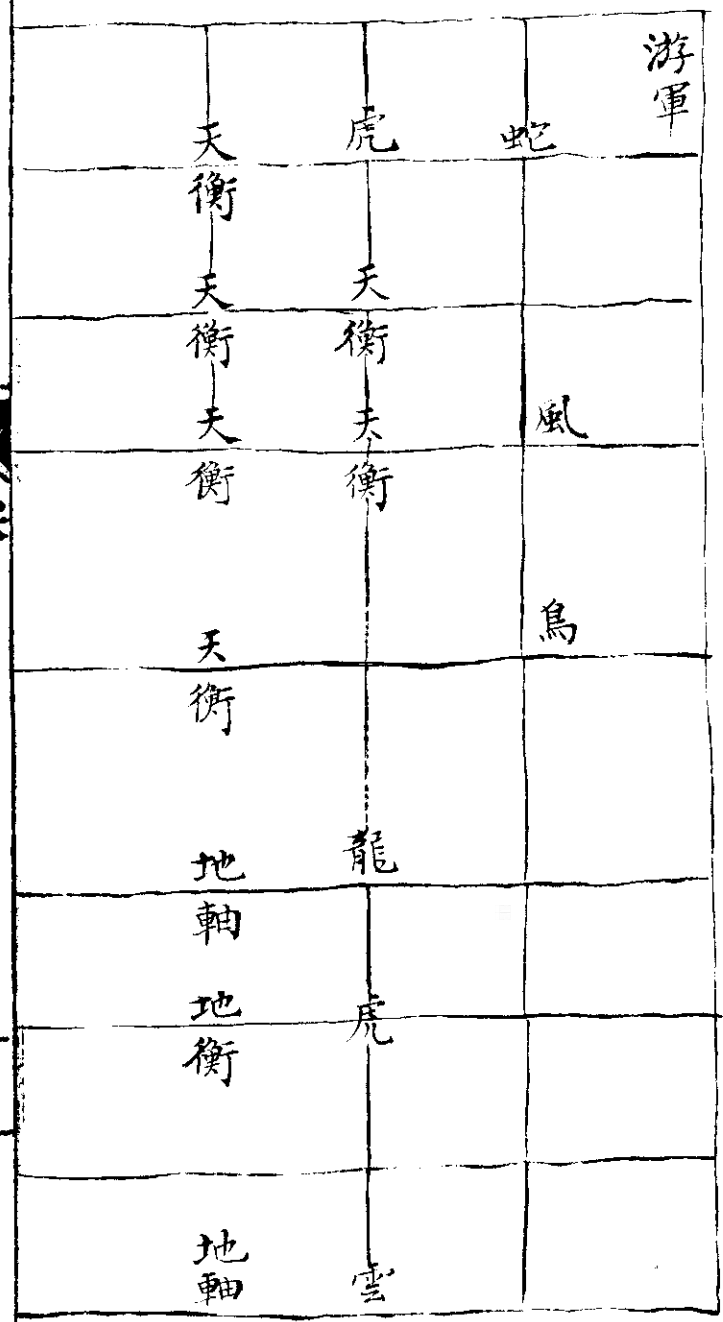 游軍
蛇
風
鳥
虎
天衡
天衡
龍
虎
雲
天衡
天衡
天衡
天衡
地軸
地衡
地軸